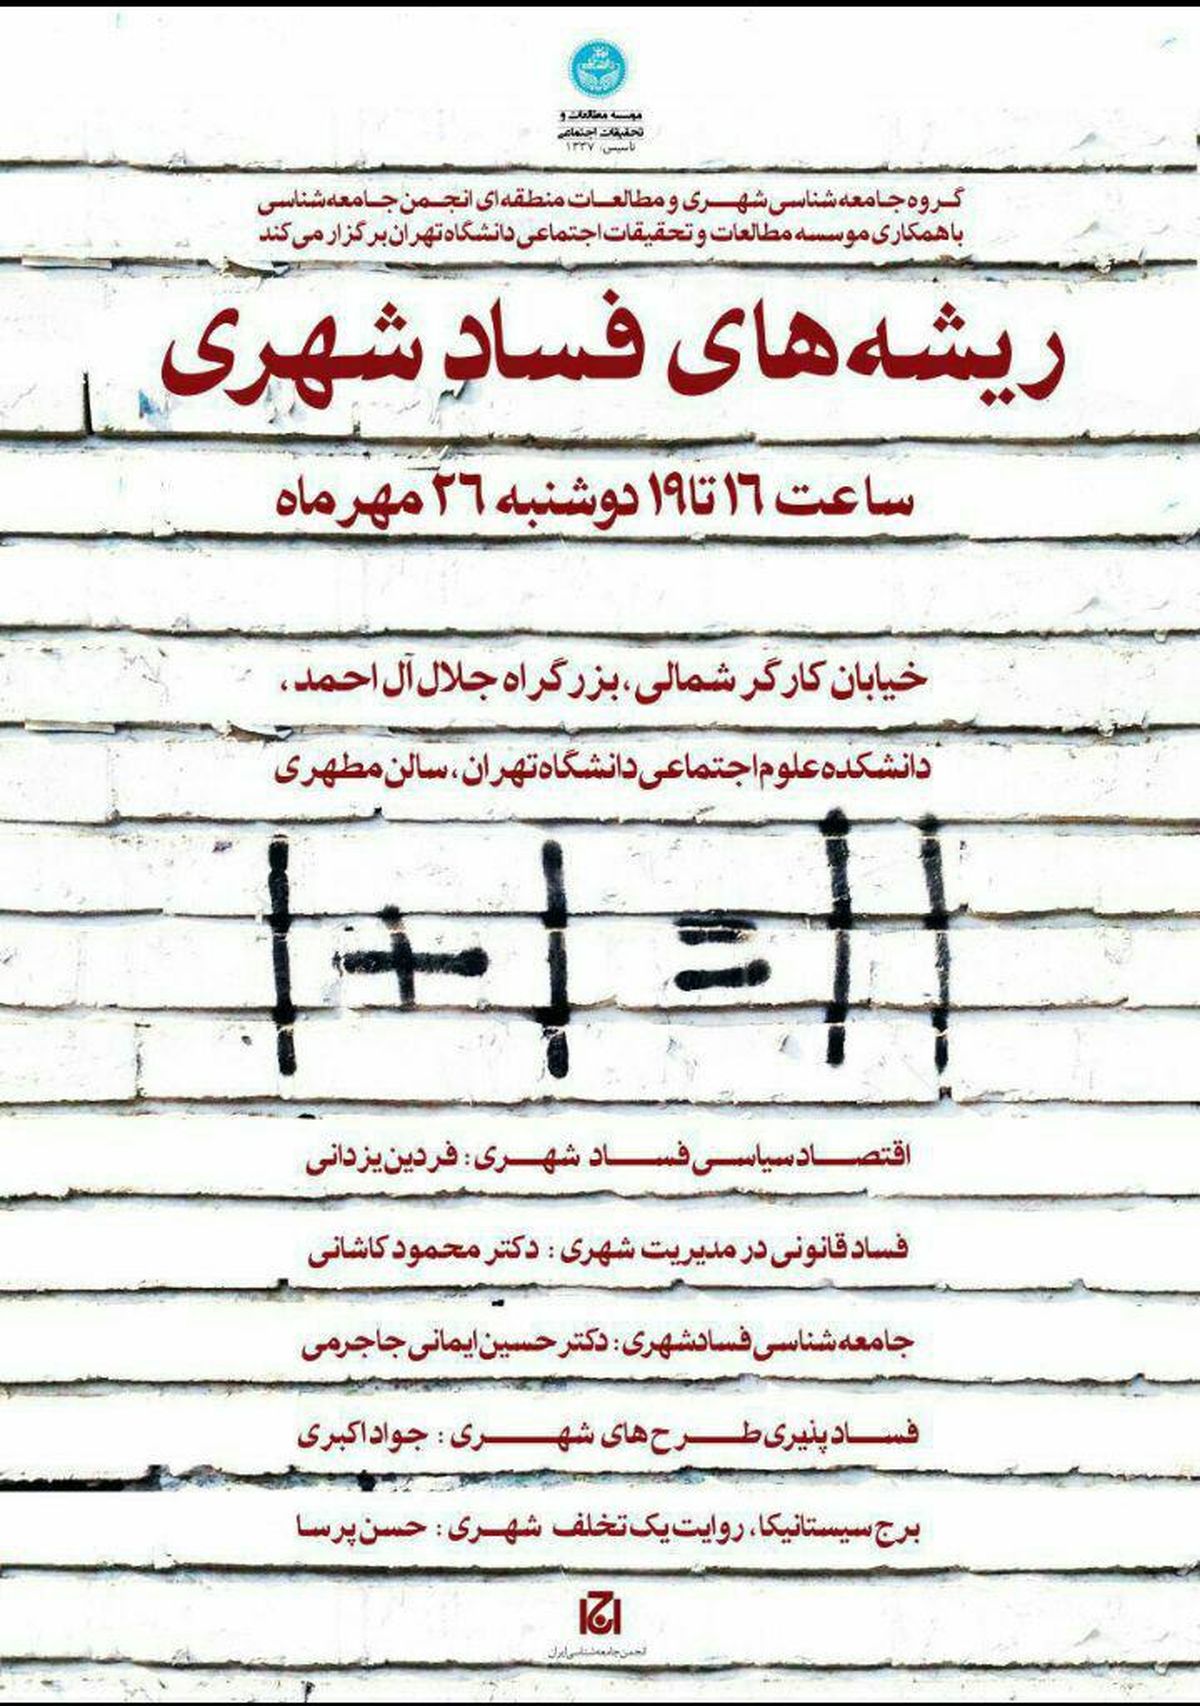 موسسه مطالعات و
تحقیقات اجتماعی
تاسیس: ۱۳۳۷
گروه جامعه‌شناسی شهری و مطالعات منطقه‌ای انجمن جامعه‌شناسی
با همکاری موسسه مطالعات و تحقیقات اجتماعی دانشگاه تهران برگزار می‌کند
ریشه‌های فساد شهری
ساعت ۱۶ تا ۱۹ دوشنبه ۲۶ مهر ماه
خیابان کارگر شمالی، بزرگراه جلال آل احمد،
دانشکده علوم اجتماعی دانشگاه تهران، سالن مطهری
1+1=11
اقتصاد سیاسی فساد شهری: فردین یزدانی
فساد قانونی در مدیریت شهری: دکتر محمود کاشانی
جامعه‌شناسی فساد شهری: دکتر حسین ایمانی جاجرمی
فساد پذیری طرح‌های شهری: جواد اکبری
برج سیستانیکا، روایت یک تخلف شهری: حسن پرسا
انجمن جامعه‌شناسی ایران